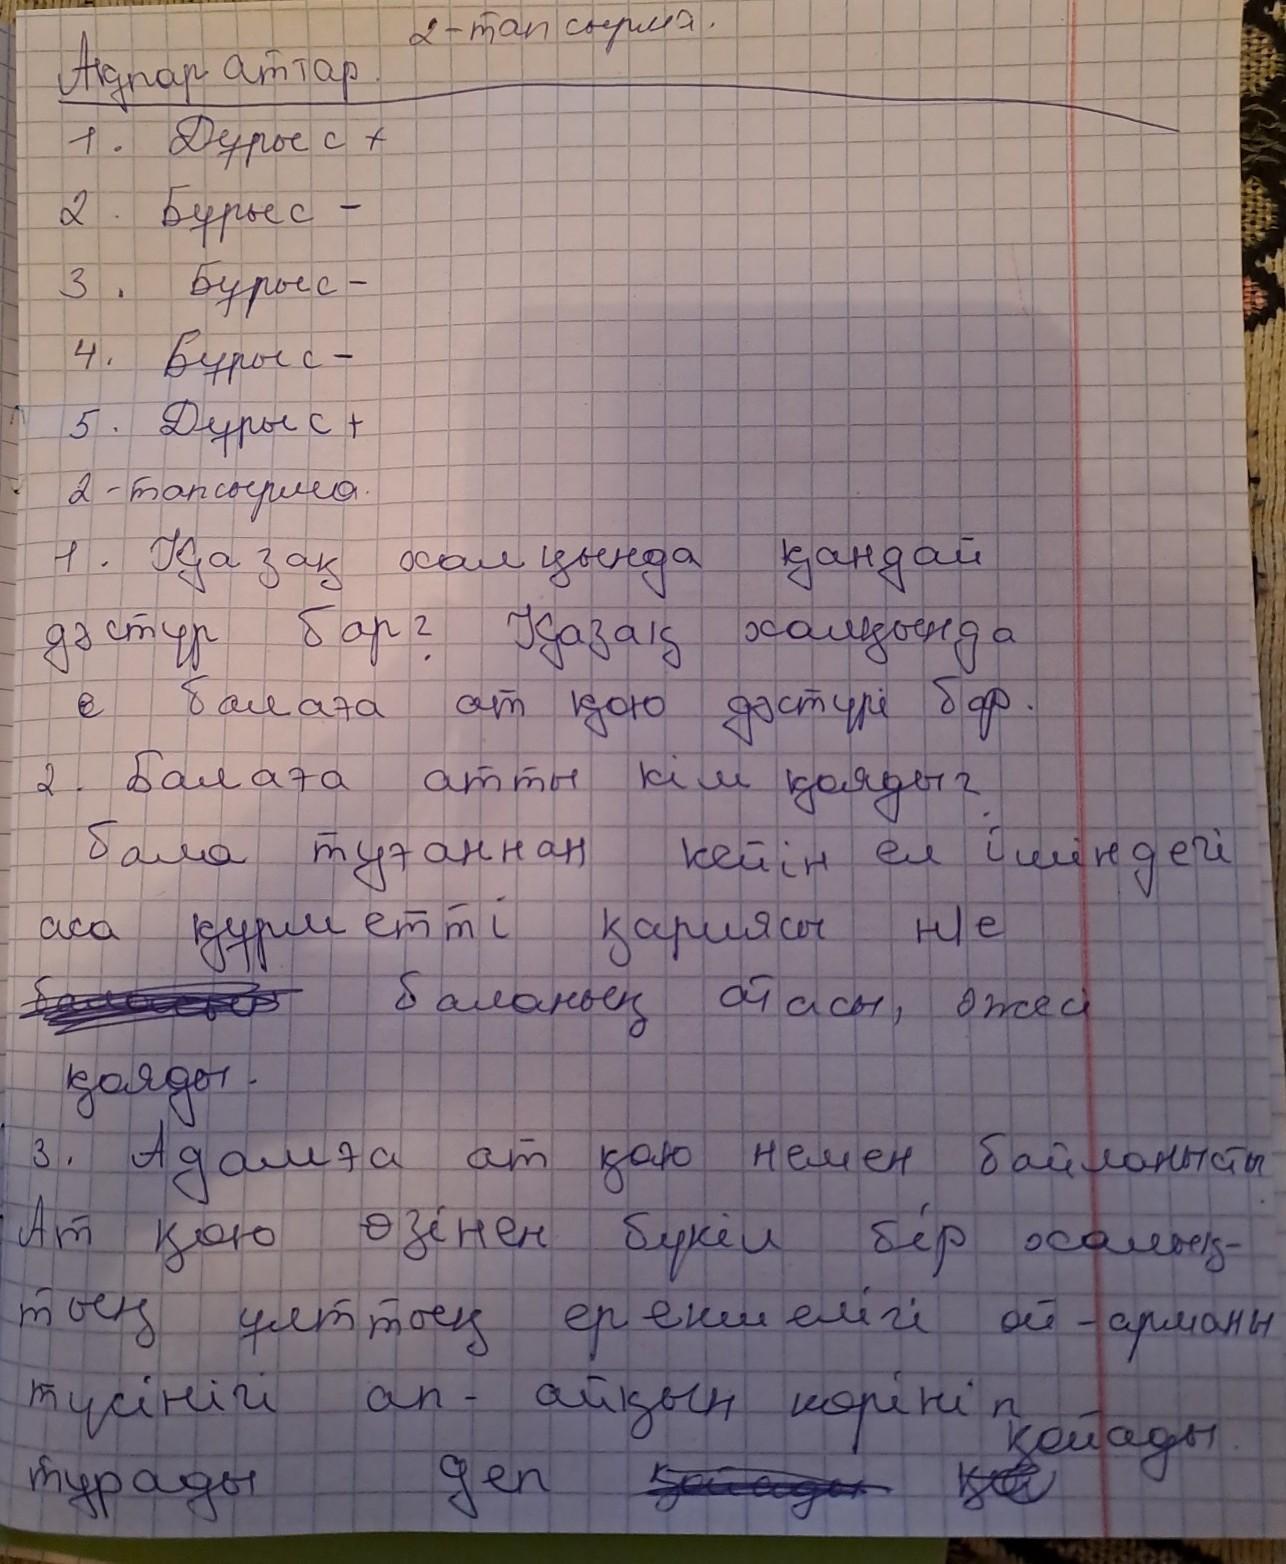 2-тапсырма.
Ақпараттар.
1. Дұрыс +
2. Бұрыс -
3. Бұрыс -
4. Бұрыс -
5. Дұрыс +
2-тапсырма.
1. Қазақ халқында қандай
дәстүр бар? Қазақ халқында
е балаға ат қою дәстүрі бар.
2. Балаға атты кім қояды?
бала туғаннан кейін ел ішіндегі
аса құрметті қариясы н/е
баланың атасы, әжесі
қояды.
3. Адамға ат қою немен байланысты
Ат қою өзінен бүкіл бір халық-
тың ұлттың ерекшелігі ой-арманы
түсінігі ап-айқын көрініп
тұрады деп қойады.